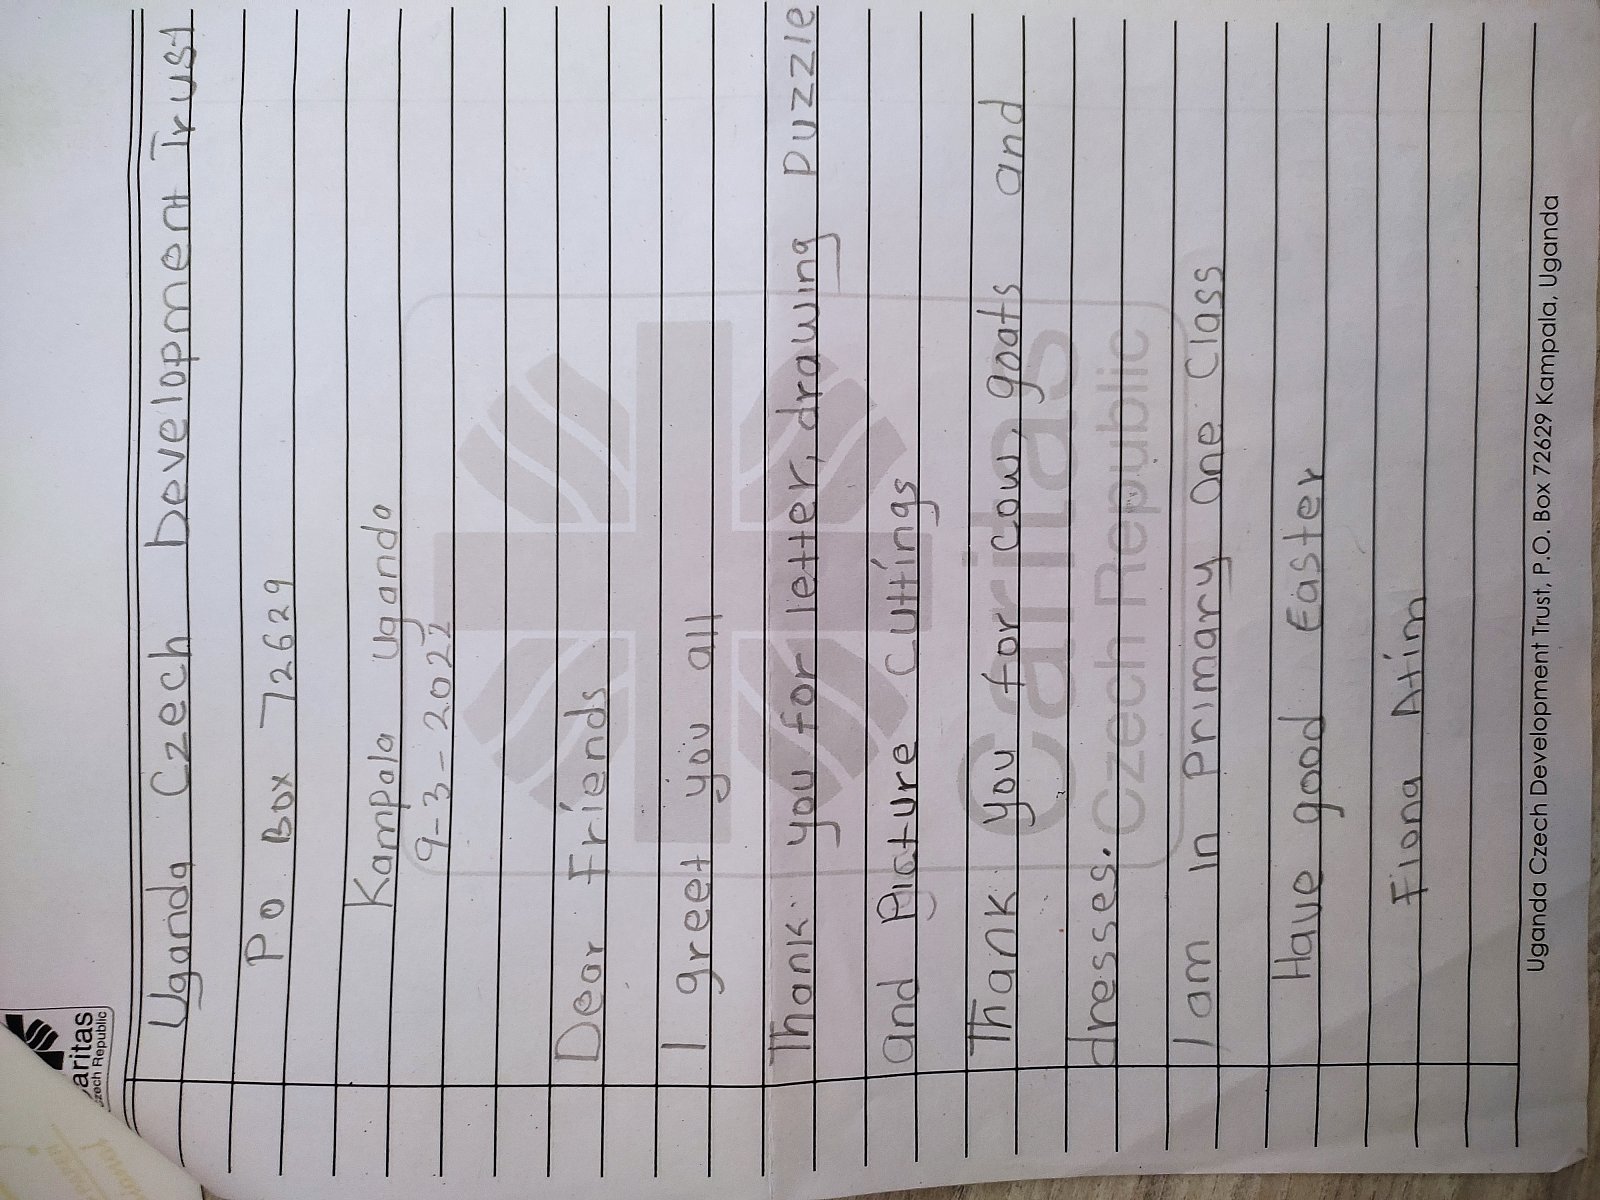 Caritas
Czech Republic
Uganda Czech Development Trust
P O Box 72629
Kampala Uganda
9-3-2022
Dear Friends
I greet you all
Thank you for letter, drawing puzzle
and Picture cuttings
Thank you for cow, goats and
dresses.
I am In Primary One Class
Have good Easter
Fiona Atim
Caritas
Czech Republic
Uganda Czech Development Trust, P.O. Box 72629 Kampala, Uganda